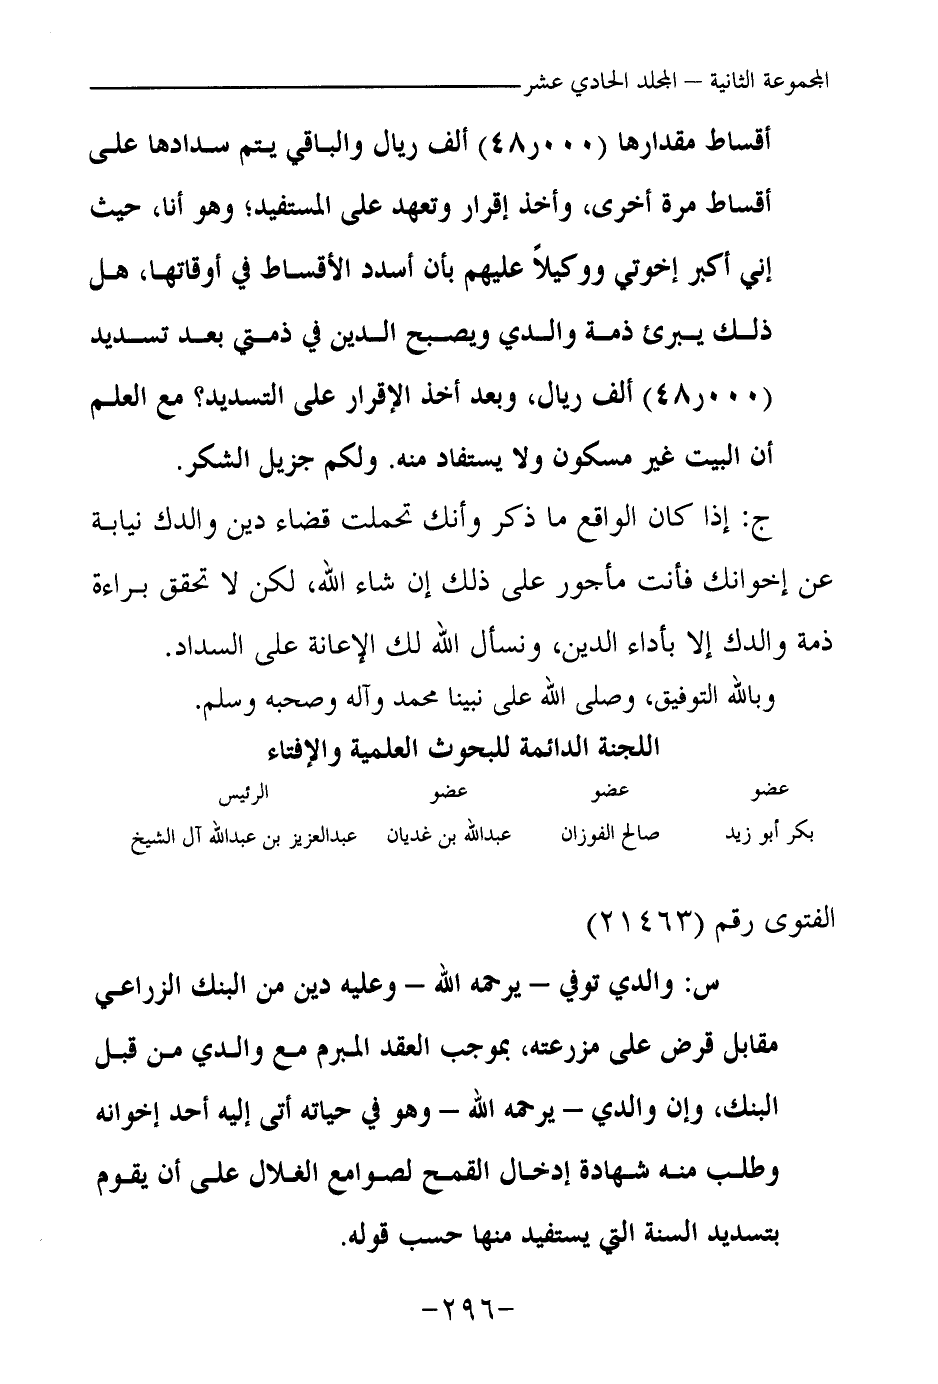 المجموعة الثانية – المجلد الحادي عشر
أقساط مقدارها (٤٨ر٠٠٠) ألف ريال والباقي يتم سدادها على
أقساط مرة أخرى، وأخذ إقرار وتعهد على المستفيد؛ وهو أنا، حيث
إني أكبر إخوتي ووكيلاً عليهم بأن أسدد الأقساط في أوقاتها، هل
ذلك يبرئ ذمة والدي ويصبح الدين في ذمتي بعد تسديد
(٤٨ر٠٠٠) ألف ريال، وبعد أخذ الإقرار على التسديد؟ مع العلم
أن البيت غير مسكون ولا يستفاد منه. ولكم جزيل الشكر.
ج: إذا كان الواقع ما ذكر وأنك تحملت قضاء دين والدك نيابة
عن إخوانك فأنت مأجور على ذلك إن شاء الله، لكن لا تحقق براءة
ذمة والدك إلا بأداء الدين، ونسأل الله لك الإعانة على السداد.
وبالله التوفيق، وصلى الله على نبينا محمد وآله وصحبه وسلم.
اللجنة الدائمة للبحوث العلمية والإفتاء
عضو عضو عضو الرئيس
بكر أبو زيد صالح الفوزان عبدالله بن غديان عبدالعزيز بن عبدالله آل الشيخ
الفتوى رقم (٢١٤٦٣)
س: والدي توفي – يرحمه الله – وعليه دين من البنك الزراعي
مقابل قرض على مزرعته، بموجب العقد المبرم مع والدي من قبل
البنك، وإن والدي – يرحمه الله – وهو في حياته أتى إليه أحد إخوانه
وطلب منه شهادة إدخال القمح لصوامع الغلال على أن يقوم
بتسديد السنة التي يستفيد منها حسب قوله.
-٢٩٦-